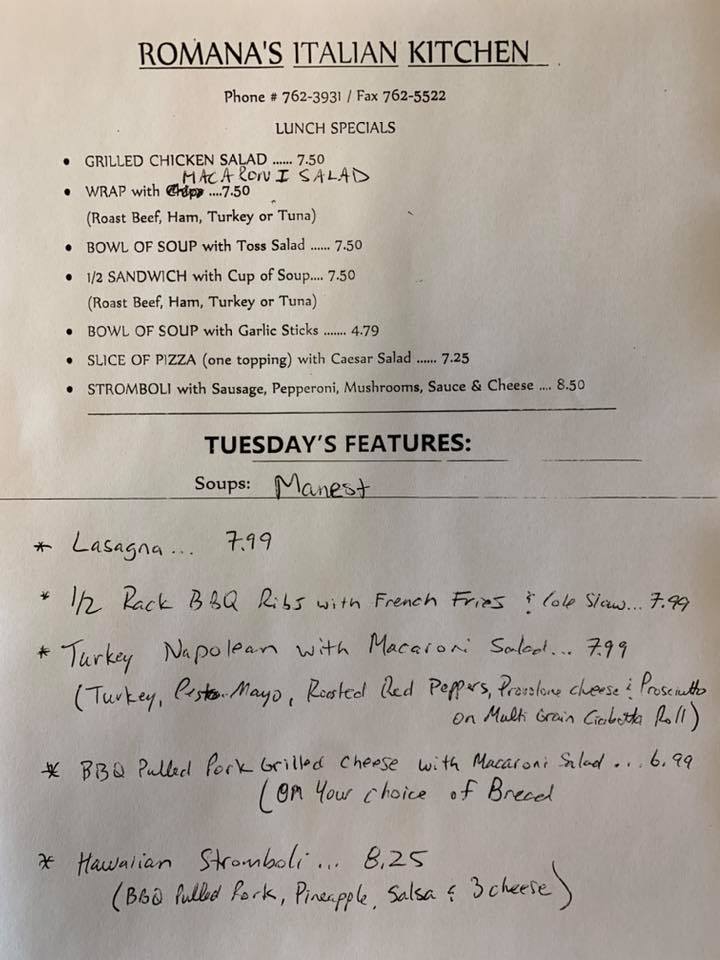 ROMANA'S ITALIAN KITCHEN
Phone # 762-3931 / Fax 762-5522
LUNCH SPECIALS
• GRILLED CHICKEN SALAD ...... 7.50
MACARONI SALAD
• WRAP with ....7.50
(Roast Beef, Ham, Turkey or Tuna)
• BOWL OF SOUP with Toss Salad ...... 7.50
• 1/2 SANDWICH with Cup of Soup.... 7.50
(Roast Beef, Ham, Turkey or Tuna)
• BOWL OF SOUP with Garlic Sticks ....... 4.79
• SLICE OF PIZZA (one topping) with Caesar Salad ...... 7.25
• STROMBOLI with Sausage, Pepperoni, Mushrooms, Sauce & Cheese .... 8.50
TUESDAY'S FEATURES:
Soups: Manest
* Lasagna... 7.99
* 1/2 Rack BBQ Ribs with French Fries & Cole Slaw... 7.99
* Turkey Napolean with Macaroni Salad... 7.99
(Turkey, Pesto Mayo, Roasted Red Peppers, Provolone cheese & Prosciutto
on Multi Grain Ciabatta Roll)
* BBQ Pulled Pork Grilled Cheese with Macaroni Salad ... 6.99
(On Your Choice of Bread
* Hawaiian Stromboli... 8.25
(BBQ Pulled Pork, Pineapple, Salsa & 3 cheese)